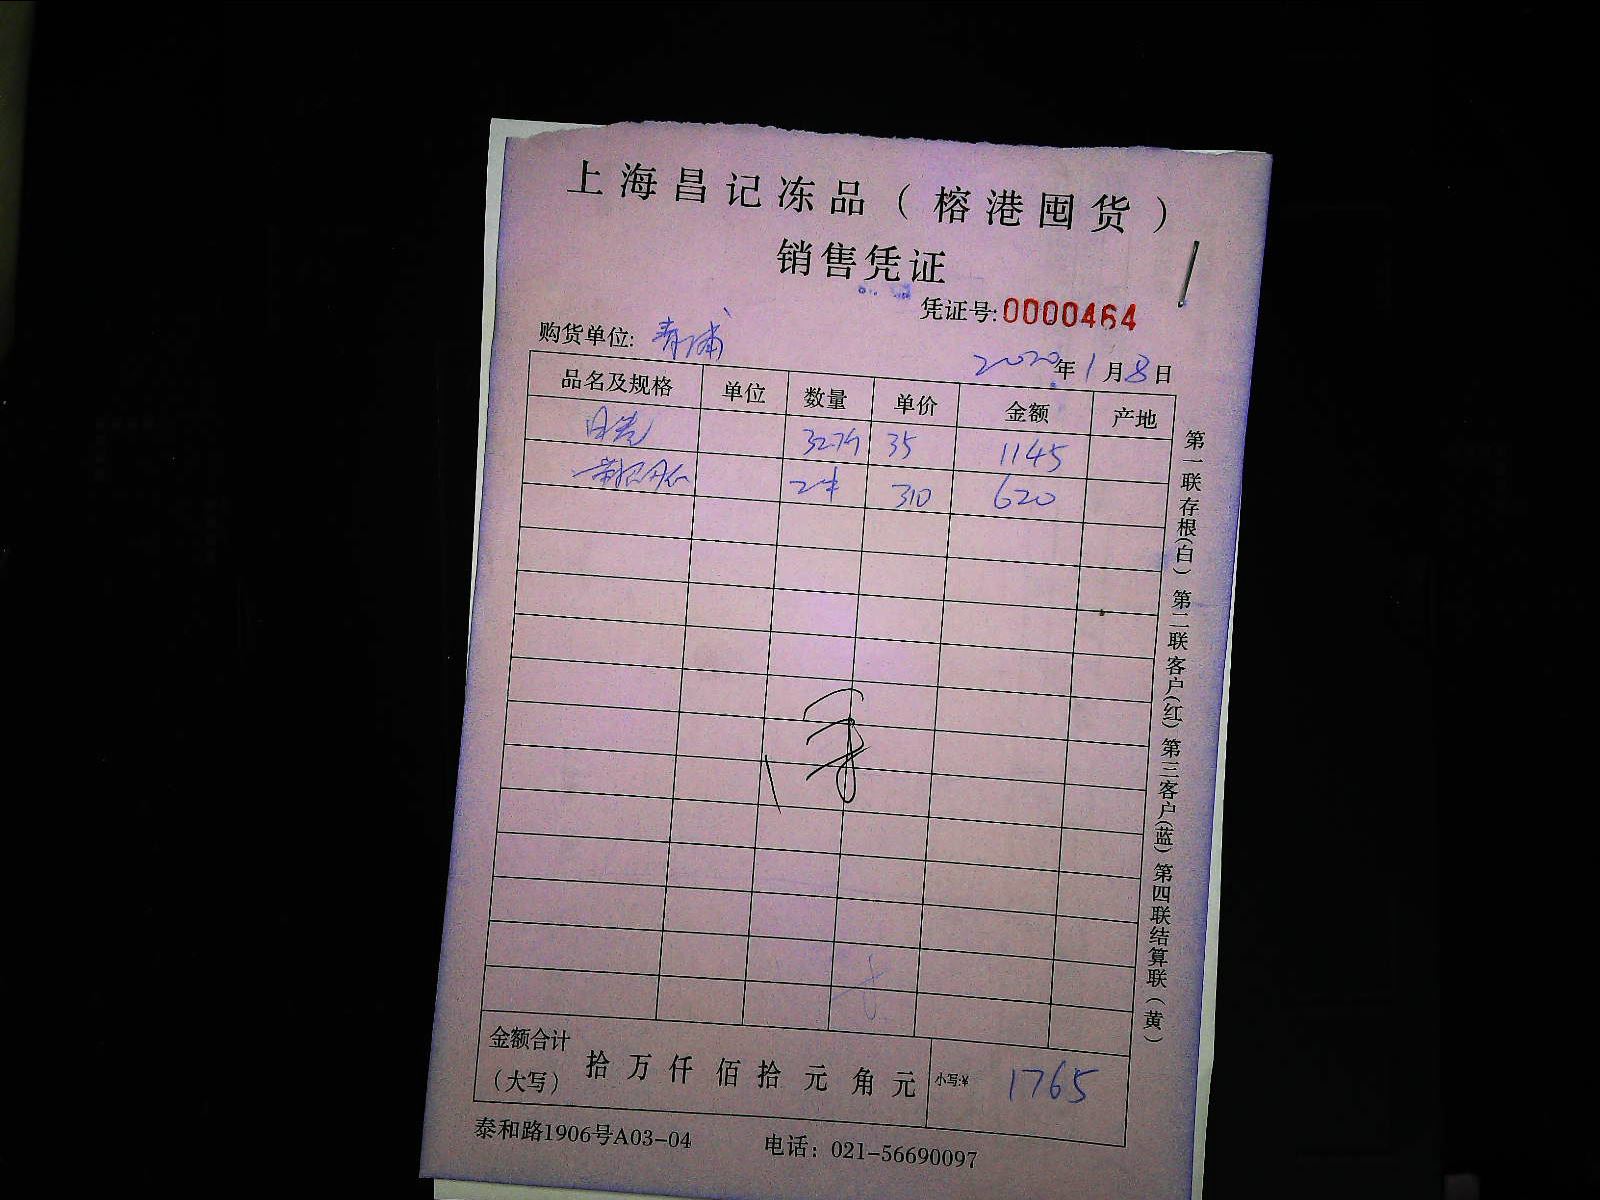 上海昌记冻品（榕港囤货）
销售凭证
凭证号:0000464
购货单位: 青浦
2020年1月8日
品名及规格 单位 数量 单价 金额 产地
35 1145
2件 310 620
金额合计（大写） 拾 万 仟 佰 拾 元 角 元 小写:¥ 1765
泰和路1906号A03-04 电话：021-56690097
第一联存根(白) 第二联客户(红) 第三客户(蓝) 第四联结算联(黄)